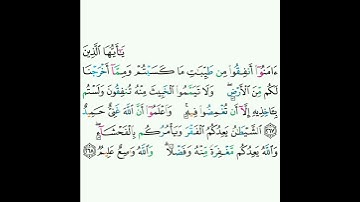 يَٰٓأَيُّهَا ٱلَّذِينَ
ءَامَنُوٓا۟ أَنفِقُوا۟ مِن طَيِّبَٰتِ مَا كَسَبْتُمْ وَمِمَّآ أَخْرَجْنَا
لَكُم مِّنَ ٱلْأَرْضِ ۖ وَلَا تَيَمَّمُوا۟ ٱلْخَبِيثَ مِنْهُ تُنفِقُونَ وَلَسْتُم
بِـَٔاخِذِيهِ إِلَّآ أَن تُغْمِضُوا۟ فِيهِ ۚ وَٱعْلَمُوٓا۟ أَنَّ ٱللَّهَ غَنِىٌّ حَمِيدٌ
٢٦٧ ٱلشَّيْطَٰنُ يَعِدُكُمُ ٱلْفَقْرَ وَيَأْمُرُكُم بِٱلْفَحْشَآءِ ۖ
وَٱللَّهُ يَعِدُكُم مَّغْفِرَةً مِّنْهُ وَفَضْلًا ۗ وَٱللَّهُ وَٰسِعٌ عَلِيمٌ ٢٦٨